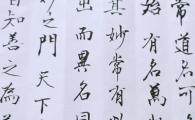 常道名可
始有名萬
其妙常有
出而異名同
之門天下
知善之為